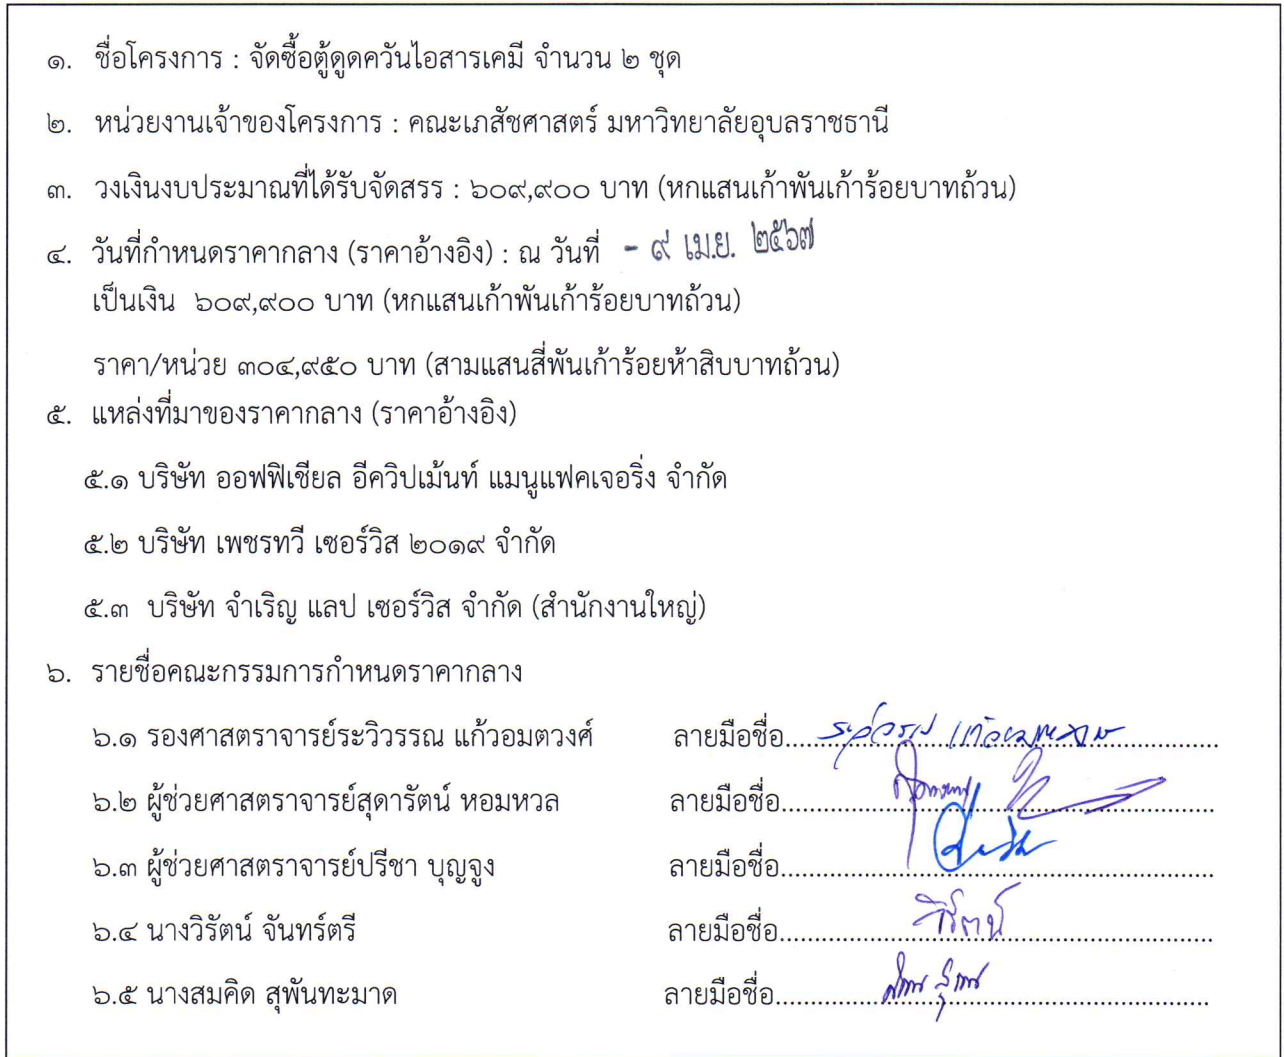 ๑. ชื่อโครงการ : จัดซื้อตู้ดูดควันไอสารเคมี จำนวน ๒ ชุด
๒. หน่วยงานเจ้าของโครงการ : คณะเภสัชศาสตร์ มหาวิทยาลัยอุบลราชธานี
๓. วงเงินงบประมาณที่ได้รับจัดสรร : ๖๐๙,๙๐๐ บาท (หกแสนเก้าพันเก้าร้อยบาทถ้วน)
๔. วันที่กำหนดราคากลาง (ราคาอ้างอิง) : ณ วันที่ - ๙ เม.ย. ๒๕๖๗
เป็นเงิน ๖๐๙,๙๐๐ บาท (หกแสนเก้าพันเก้าร้อยบาทถ้วน)
ราคา/หน่วย ๓๐๔,๙๕๐ บาท (สามแสนสี่พันเก้าร้อยห้าสิบบาทถ้วน)
๕. แหล่งที่มาของราคากลาง (ราคาอ้างอิง)
๕.๑ บริษัท ออฟฟิเชียล อีควิปเม้นท์ แมนูแฟคเจอริ่ง จำกัด
๕.๒ บริษัท เพชรทวี เซอร์วิส ๒๐๑๙ จำกัด
๕.๓ บริษัท จำเริญ แลป เซอร์วิส จำกัด (สำนักงานใหญ่)
๖. รายชื่อคณะกรรมการกำหนดราคากลาง
๖.๑ รองศาสตราจารย์ระวิวรรณ แก้วอมตวงศ์ ลายมือชื่อ
๖.๒ ผู้ช่วยศาสตราจารย์สุดารัตน์ หอมหวล ลายมือชื่อ
๖.๓ ผู้ช่วยศาสตราจารย์ปรีชา บุญจูง ลายมือชื่อ
๖.๔ นางวิรัตน์ จันทร์ตรี ลายมือชื่อ วิรัตน์
๖.๕ นางสมคิด สุพันทะมาด ลายมือชื่อ